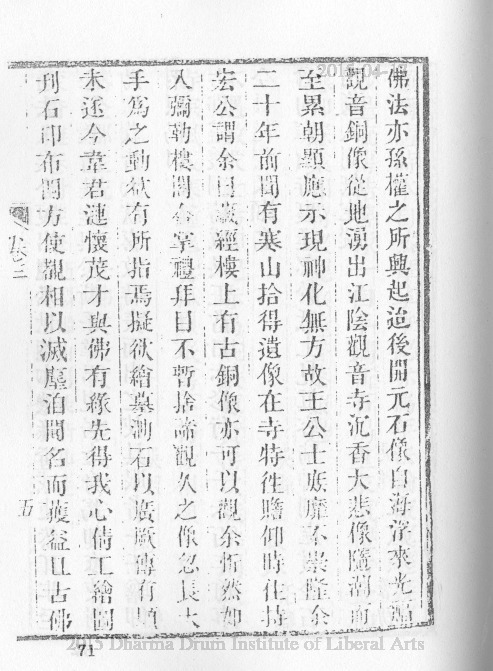 佛法亦孫權之所興起迨後開元石像自海浮來光
觀音銅像從地湧出江陰觀音寺沉香大悲像隨潮而
至累朝顯應示現神化無方故王公士庶靡不崇隆余
二十年前聞有寒山拾得遺像在寺特徃瞻仰時住持
宏公謂余曰藏經樓上有古銅像亦可以觀余忻然如
入彌勒樓閣合掌禮拜目不暫捨諦觀久之像忽長大
手為之動欲有所指焉擬欲繪摹泐石以廣厥傳有
未逮今韋君漣懷茂才與佛有緣先得我心倩工繪圖
刊石印布四方使覩相以滅塵洎聞名而獲益且古佛
卷三
五
71
2015 Dharma Drum Institute of Liberal Arts